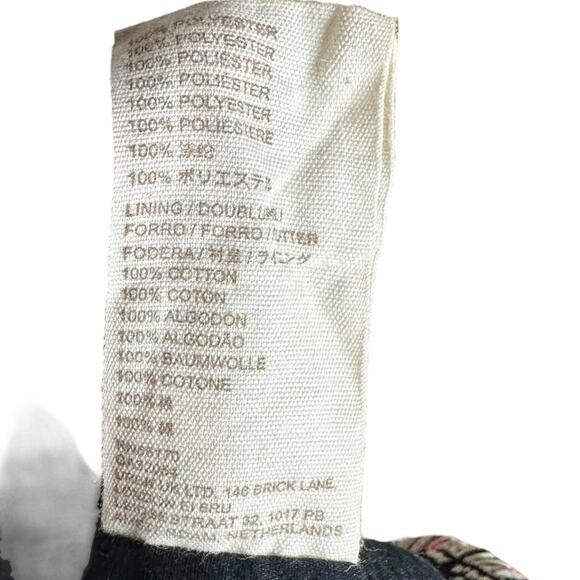 100% POLYESTER
100% POLYESTER
100% POLIESTER
100% POLIESTER
100% POLYESTER
100% POLIESTERE
100%
100% ポリエステル
LINING / DOUBLURE /
FORRO / FORRO / FUTTER
FODERA / 村里 / ライニング
100% COTTON
100% COTON
100% ALGODON
100% ALGODÃO
100% BAUMWOLLE
100% COTONE
100% 棉
100% 綿
UK LTD, 146 BRICK LANE,
E1 6RU
STRAAT 32, 1017 PB
NETHERLANDS